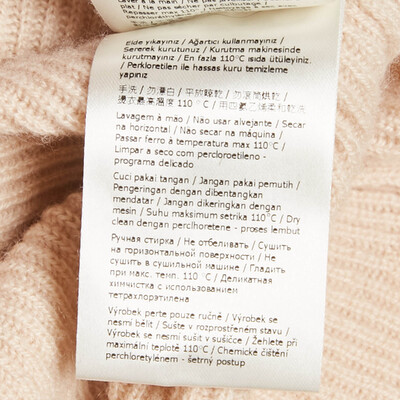 Laver à la main / Ne pas
plat / Ne pas sécher par culbutage /
Repasser max 110°C / Nettoyage
perchloréthylène
Elde yıkayınız / Ağartıcı kullanmayınız /
Sererek kurutunuz / Kurutma makinesinde
kurutmayınız / En fazla 110°C ısıda ütüleyiniz.
/ Perkloretilen ile hassas kuru temizleme
yapınız
手洗 / 勿漂白 / 平放晾乾 / 勿滾筒烘乾 /
燙衣最高溫度 110°C / 用四氯乙烯柔和乾洗
Lavagem à mão / Não usar alvejante / Secar
na horizontal / Não secar na máquina /
Passar ferro à temperatura max 110°C /
Limpar a seco com percloroetileno -
programa delicado
Cuci pakai tangan / Jangan pakai pemutih /
Pengeringan dengan dibentangkan
mendatar / Jangan dikeringkan dengan
mesin / Suhu maksimum setrika 110°C / Dry
clean dengan perclhoretene - proses lembut
Ручная стирка / Не отбеливать / Сушить
на горизонтальной поверхности / Не
сушить в сушильной машине / Гладить
при макс. темп. 110°C / Деликатная
химчистка с использованием
тетрахлорэтилена
Výrobek perte pouze ručně / Výrobek se
nesmí bělit / Sušte v rozprostřeném stavu /
Výrobek se nesmí sušit v sušičce / Žehlete při
maximální teplotě 110°C / Chemické čištění
perchloretylénem - šetrný postup